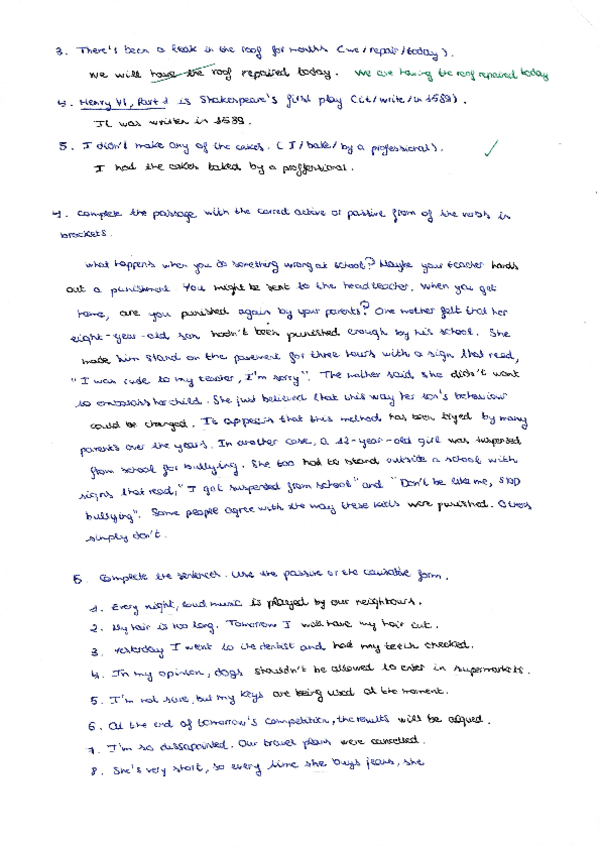 3. There's been a leak in the roof for months (we/repair/today).
We will have the roof repaired today. We are having the roof repaired today
4. Henry VI, Part 1 is Shakespeare's first play (it/write/in 1589).
It was written in 1589.
5. I didn't make any of the cakes. (I/bake/by a professional). ✓
I had the cakes baked by a proffessional.
4. Complete the passage with the correct active or passive from of the verbs in
brackets.
What happens when you do something wrong at school? Maybe your teacher hands
out a punishment. You might be sent to the headteacher. When you get
home, are you punished again by your parents? One mother felt that her
eight-year-old son hadn't been punished enough by his school. She
made him stand on the pavement for three hours with a sign that read,
"I was rude to my teacher, I'm sorry". The mother said she didn't want
to embarass her child. She just believed that this way her son's behaviour
could be changed. It appears that this method has been tryed by many
parents over the years. In another case, a 12-year-old girl was suspended
from school for bullying. She too had to stand outside a school with
signs that read, "I got suspended from school" and "Don't be like me, stop
bullying". Some people agree with the way these kids were punished. Others
simply don't.
5. Complete the sentences. Use the passive or the causative form.
1. Every night, loud music is played by our neighbours.
2. My hair is too long. Tomorrow I will have my hair cut.
3. Yesterday I went to the dentist and had my teeth checked.
4. In my opinion, dogs shouldn't be allowed to enter in supermarkets.
5. I'm not sure, but my keys are being used at the moment.
6. At the end of tomorrow's competition, the results will be
7. I'm so dissapointed. Our travel plans were cancelled.
8. She's very short, so every time she buys jeans, she